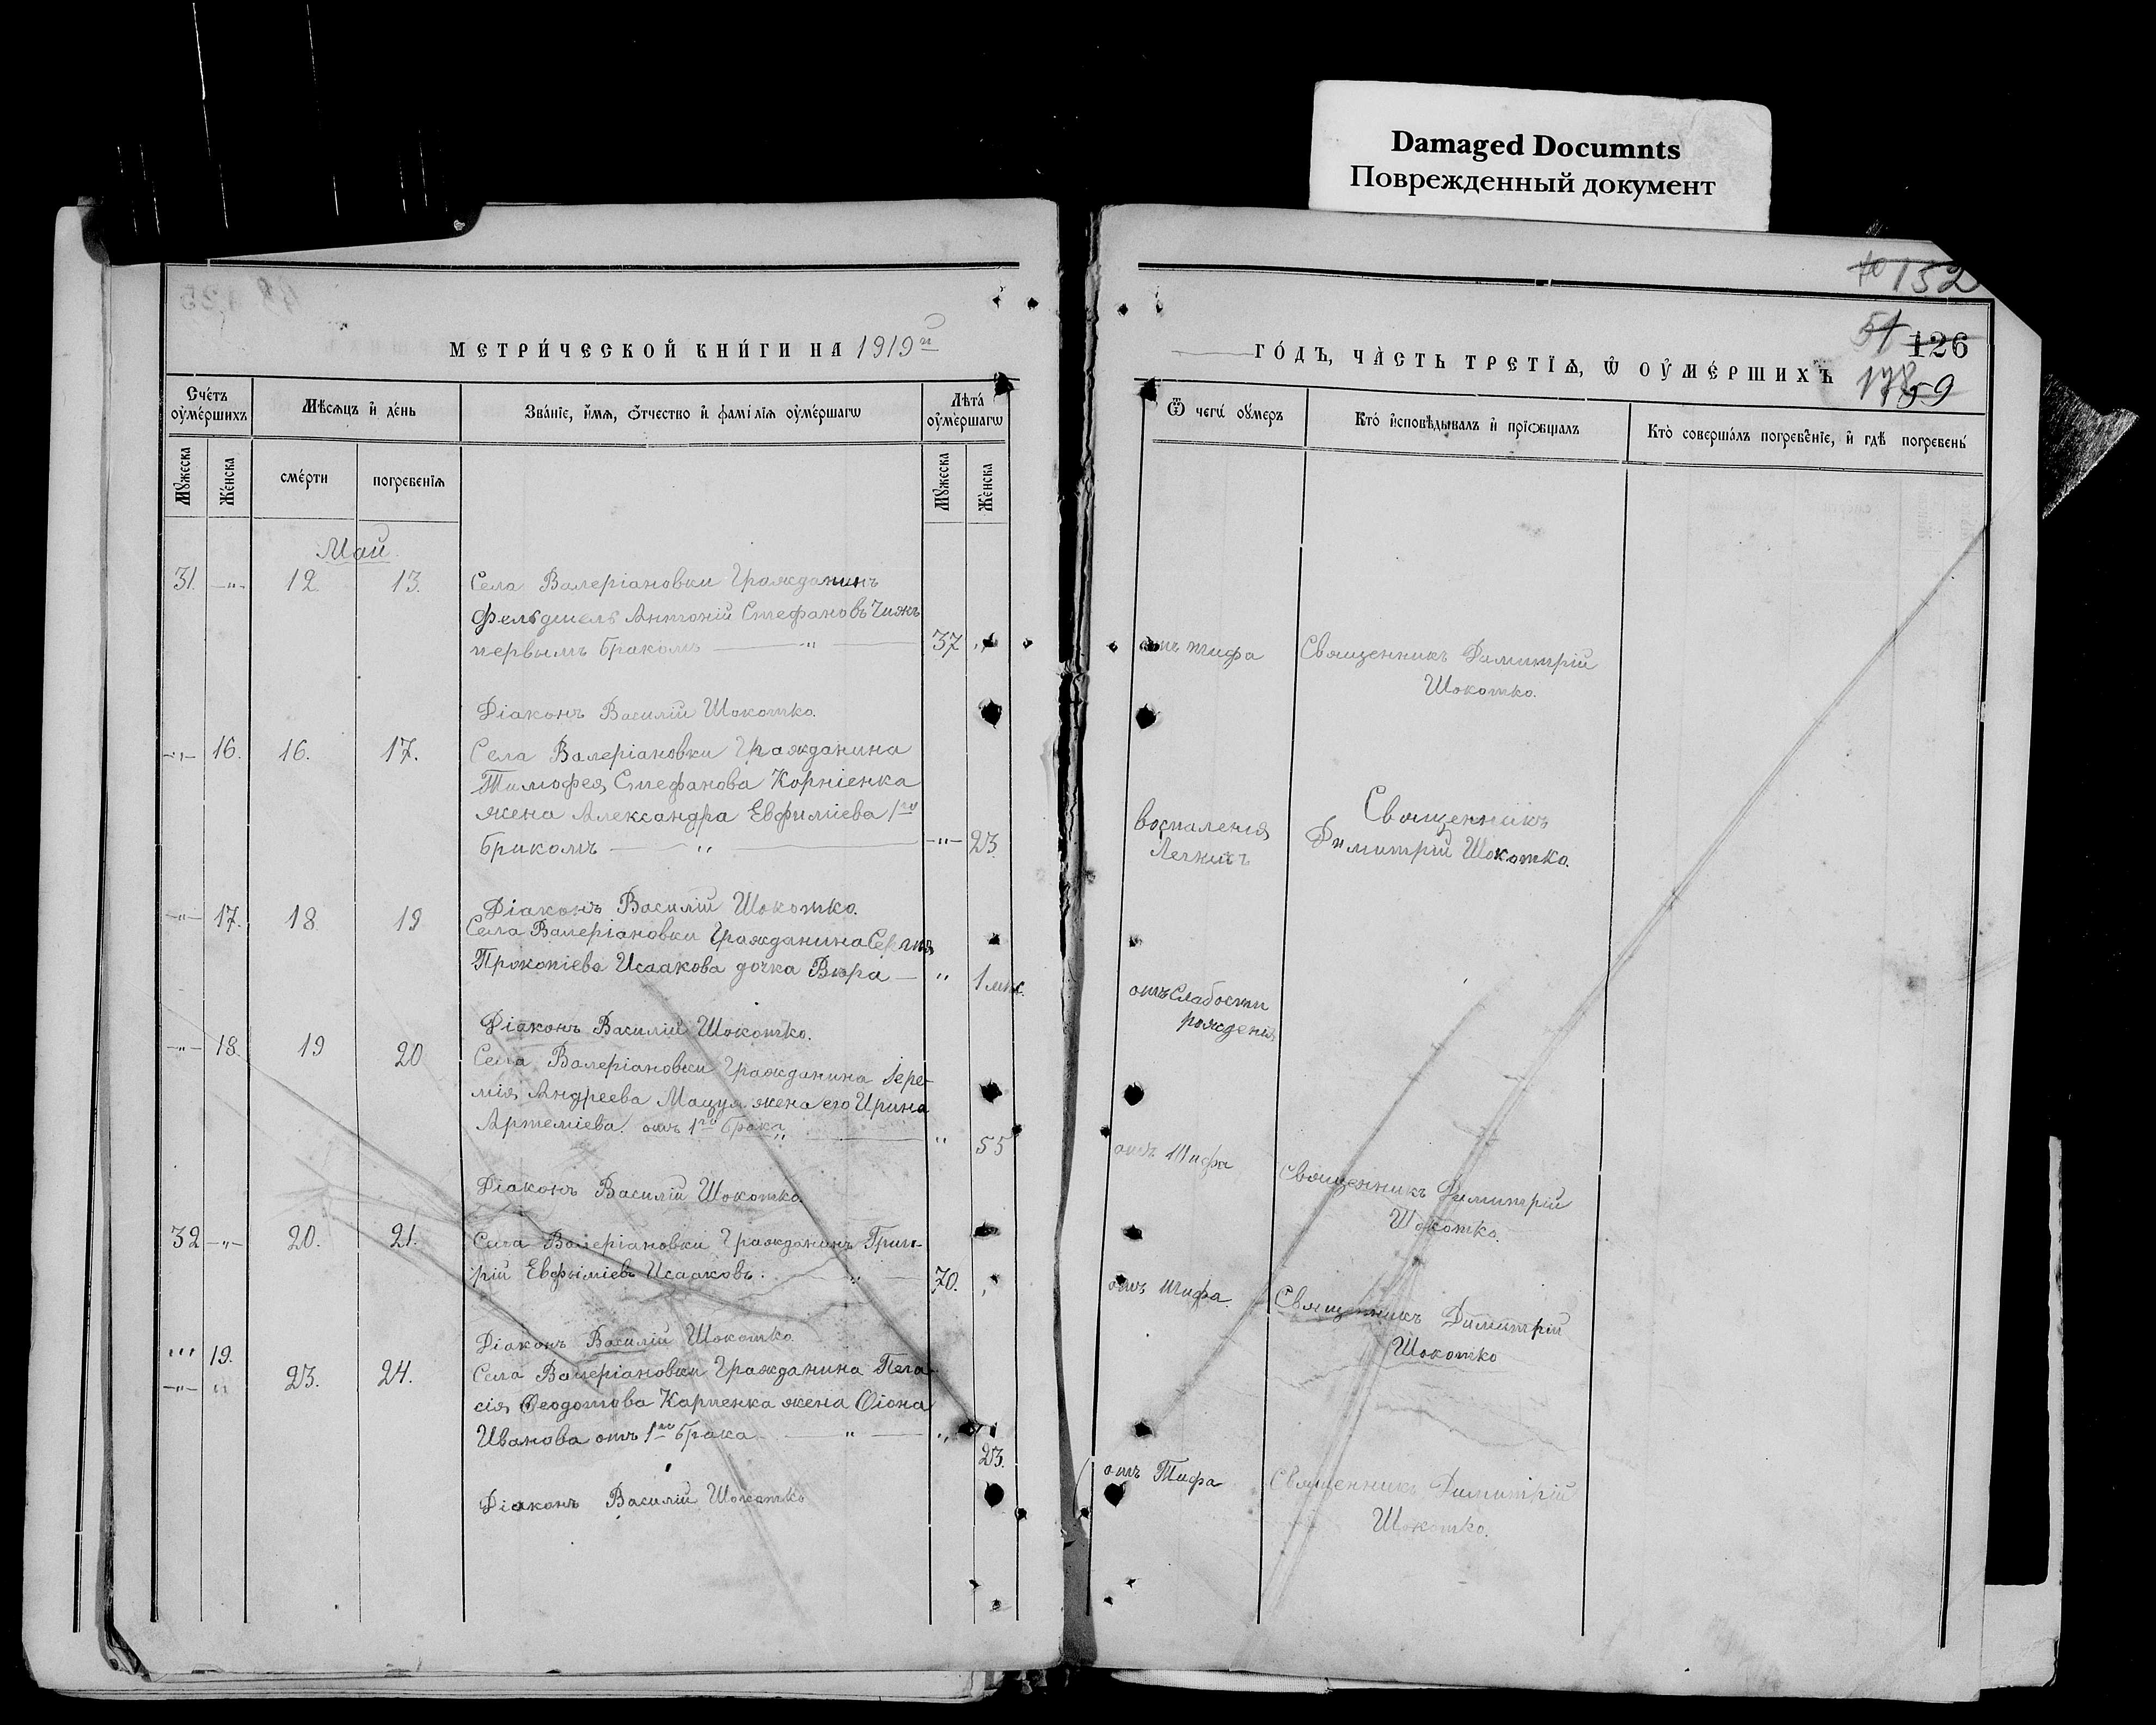 Damaged Documnts
Поврежденный документ
152
51 126
59
МЕТРИ́ЧЕСКОЙ КНИ́ГИ НА 1919й
ГО́ДЪ, ЧА̀СТЬ ТРЕТІѦ, Ѿ ОУ҆МЕ́РШИХЪ
Сче́тъ оу҆ме́ршихъ
Мѣ́сѧцъ и҆ де́нь
Зва́нїе, и҆́мѧ, ѻ҆́тчество и҆ фамі́лїѧ оу҆ме́ршагѡ
Лѣта́ оу҆ме́ршагѡ
Ѿ чегѡ̀ оу҆́меръ
Кто̀ и҆сповѣ́дывалъ и҆ прїѻбща́лъ
Кто̀ соверша́лъ погребе́нїе, и҆ гдѣ̀ погребены̀
Мꙋжеска
Женска
сме́рти
погребенїѧ
Мꙋжеска
Женска
Май
31. -"- 12. 13. Села Валеріановки Гражданинъ
Антоній Стефановъ Чижъ
первымъ бракомъ — " — 37 "
отъ тифа
Священникъ Димитрій
Шокотко.
Діаконъ Василій Шокотко.
-"- 16. 16. 17. Села Валеріановки Гражданина
Тимофея Стефанова Корніенка
жена Александра Евфиміева 1го
бракомъ — " — -"- 23.
воспаленія
Легкихъ
Священникъ
Димитрій Шокотко.
Діаконъ Василій Шокотко.
-"- 17. 18. 19 Села Валеріановки Гражданина Сергия
Прокопіева Исаакова дочка Вѣра — " 1 мѣс.
отъ Слабости
рожденія
Діаконъ Василій Шокотко.
-"- 18. 19 20 Села Валеріановки Гражданина Іере-
мія Андреева Мацуя жена его Ирина
Артеміева. отъ 1го брака " — " 55
отъ Тифа
Священникъ Димитрій
Шокотко.
Діаконъ Василій Шокотко.
32 -"- 20. 21. Села Валеріановки Гражданинъ Григо-
рій Евфиміевъ Исааковъ. — " — 70. "
отъ тифа.
Священникъ Димитрій
Шокотко
Діаконъ Василій Шокотко
19.
-"- " 23. 24. Села Валеріановки Гражданина Пела-
сія Ѳеодотова Карпенка жена Ѳіона
Иванова отъ 1го брака — " — "
23.
отъ Тифа
Священникъ Димитрій
Шокотко.
Діаконъ Василій Шокотко